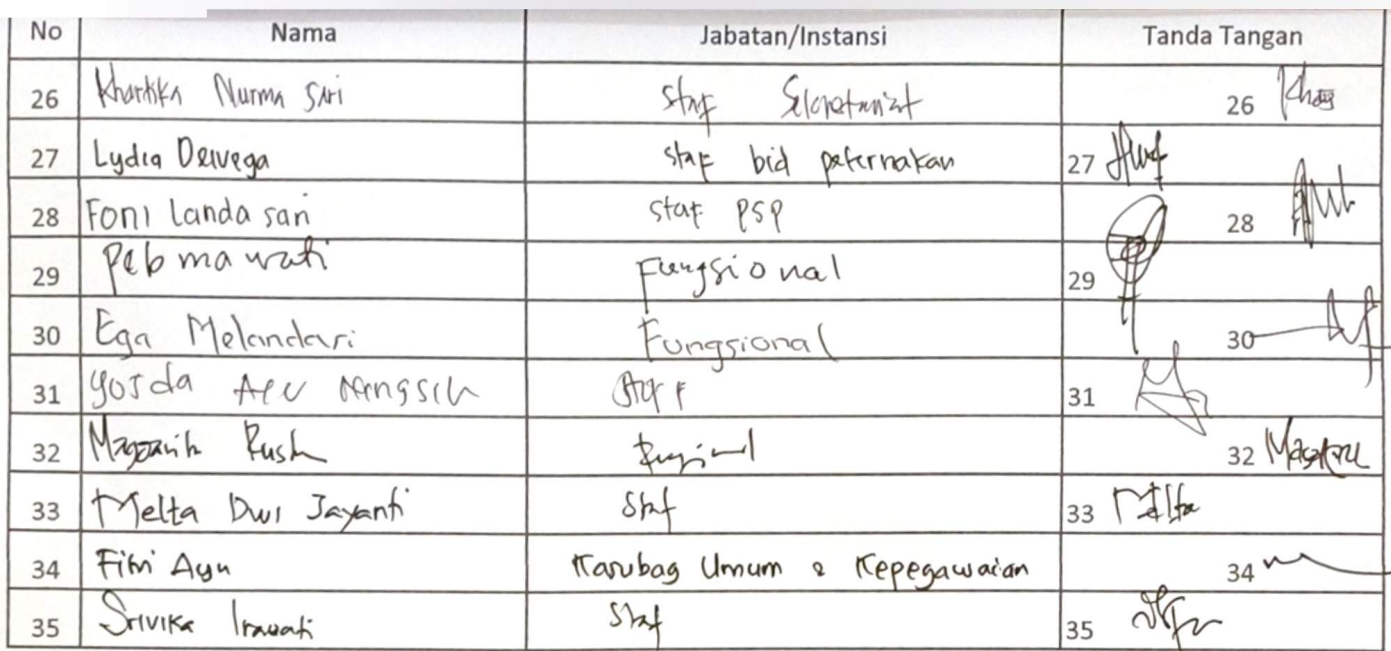 No Nama Jabatan/Instansi Tanda Tangan
26 Khartika Nurma Sari Staf Sekretariat 26
27 Lydia Dewega staf bid peternakan 27
28 Foni Landa sari staf PSP 28
29 Pebmawati Fungsional 29
30 Ega Melandari Fungsional 30
31 Yosda Ayu Ningsih Staf 31
32 Rush Fungsional 32
33 Melta Dwi Jayanti Staf 33 Melta
34 Fitri Ayu Kasubag Umum & Kepegawaian 34
35 Srivika Irawati Staf 35